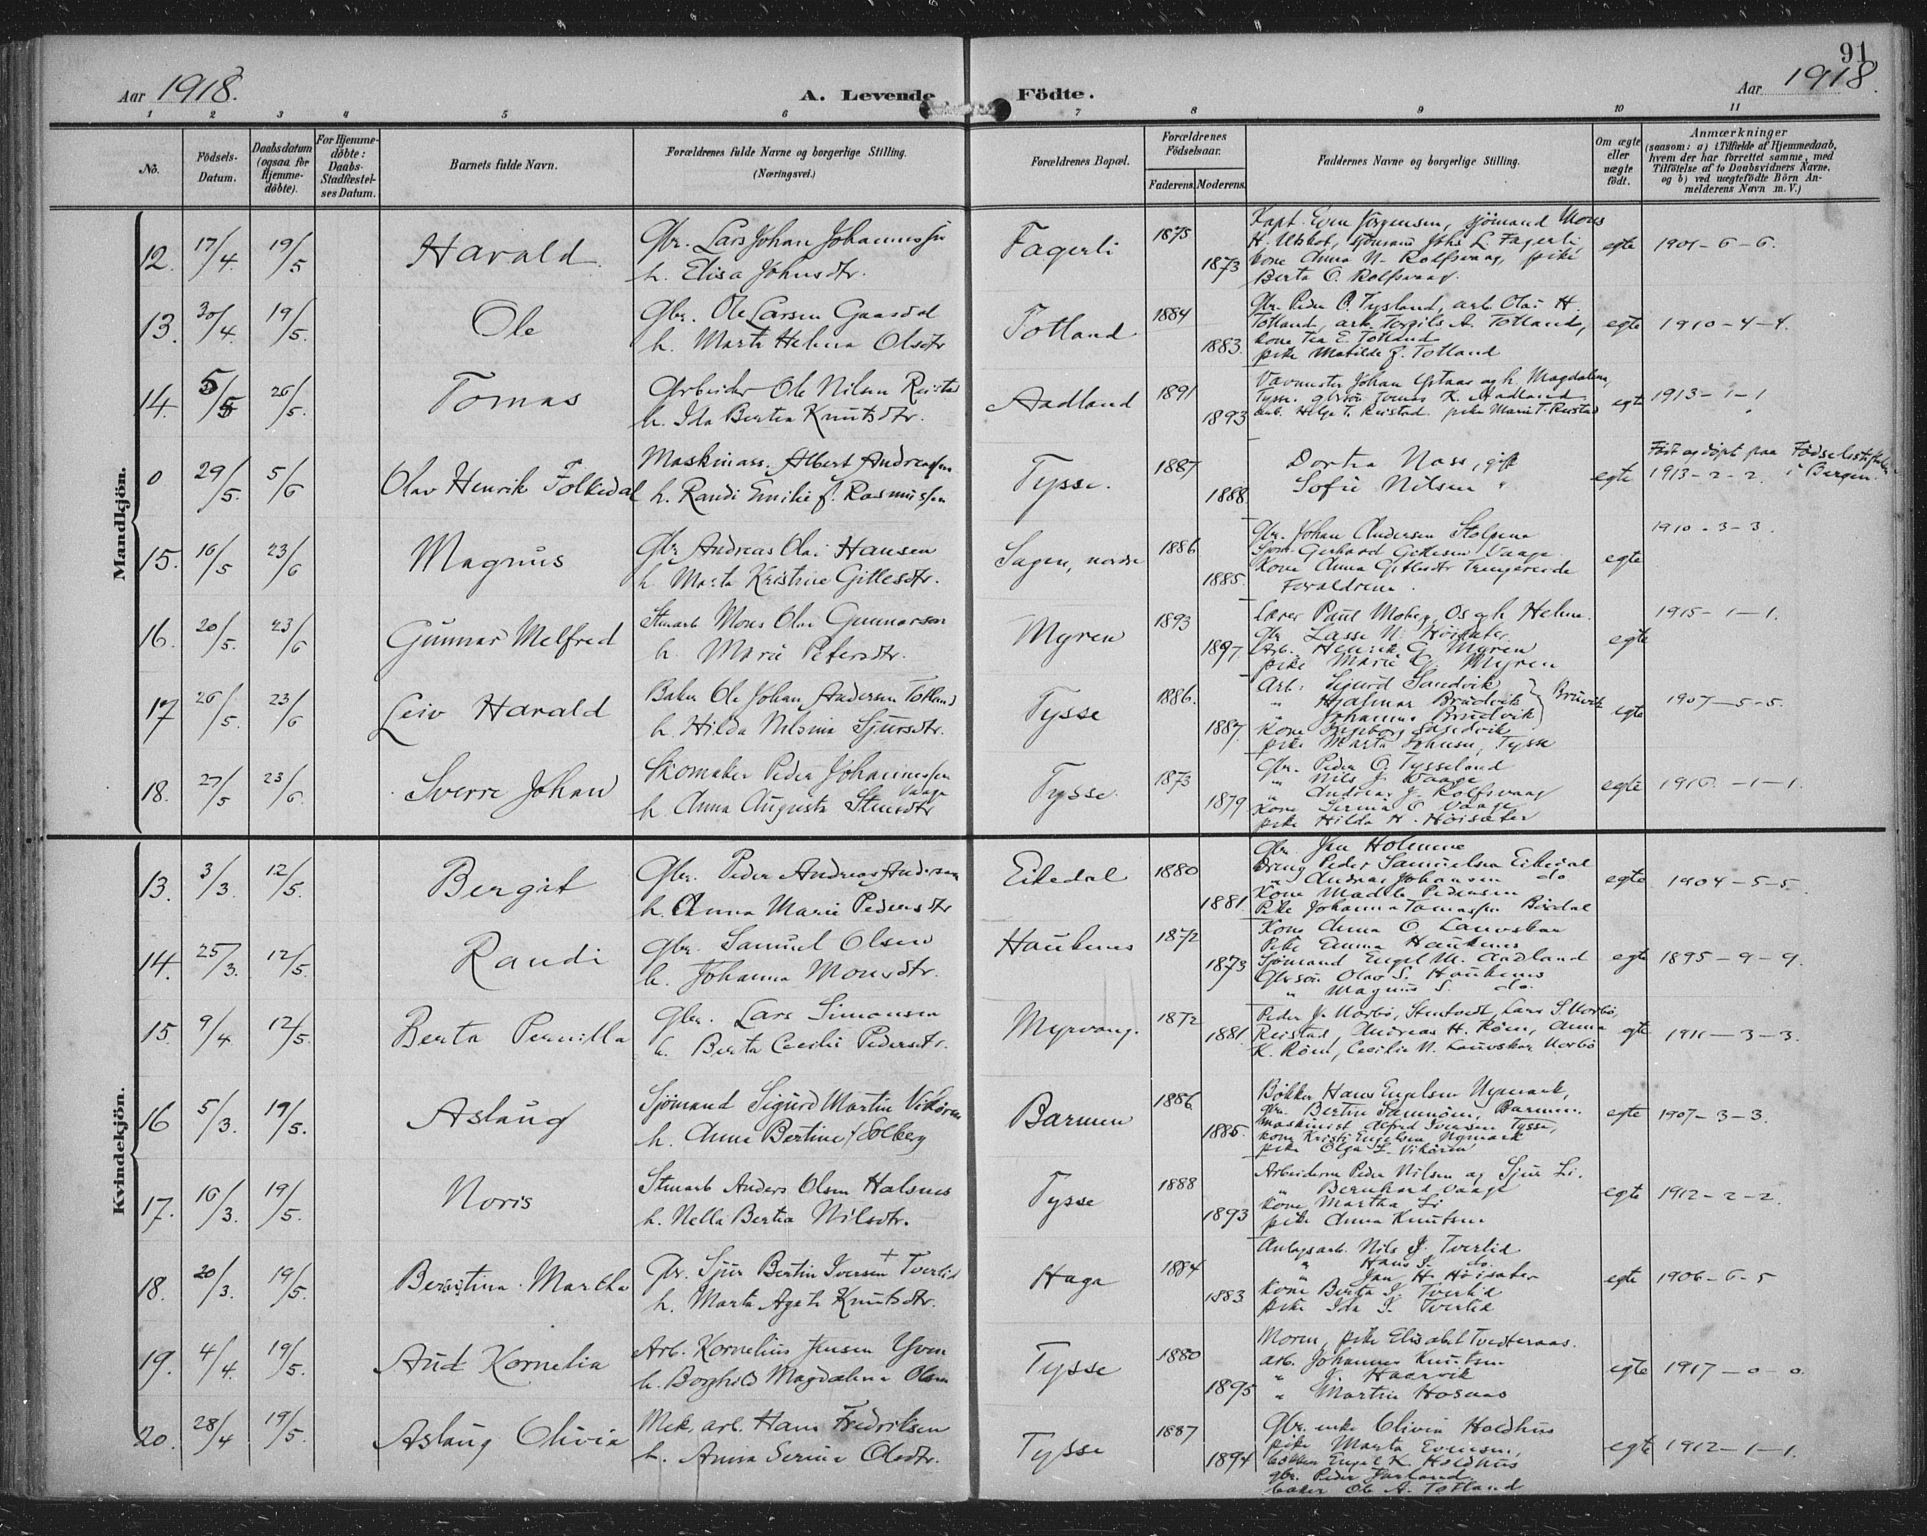 91
Aar 1918.
A. Levende Födte.
Aar 1918.
1 2 3 4 5 6 7 8 9 10 11
No.
Födsels-Datum.
Daabsdatum (ogsaa for Hjemme-döbte).
For Hjemme-döbte: Daabs-Stadfæstelses Datum.
Barnets fulde Navn.
Forældrenes fulde Navne og borgerlige Stilling. (Næringsvei.)
Forældrenes Bopæl.
Forældrenes Födselsaar.
Faderens. Moderens.
Faddernes Navne og borgerlige Stilling.
Om ægte eller uægte födt.
Anmærkninger
(saasom: a) i Tilfælde af Hjemmedaab, hvem der har forrettet samme, med Tilföielse af to Daabsvidners Navne, og b) ved uægtefödte Börn Anmelderens Navn m. V.)
Mandkjön.
12. 17/4. 19/5 Harald Gbr. Lars Johan Johannessen
h. Elisa Johnsdtr. Fagerli 1875 1873
Kapt. Even Jörgensen, sjömand Mons
H. Utskot, sjömand Johs L. Fagerli,
kone Anna N. Rolfsvaag, pike
Berta O. Rolfsvaag. egte 1901-6-6.
13. 30/4. 19/5. Ole Gbr. Ole Larsen Gaasdal
h. Marta Helena Olsdtr Totland 1884 1883.
Gbr. Peder O. Tysland, arb. Olai H.
Totland, arb. Torgils A. Totland,
kone Tea E. Totland
pike Matilde J. Totland egte 1910-4-4.
14. 5/5 26/5. Tomas Arbeider Ole Nilsen Reistad
h. Ida Bertea Knutsdtr. Aadland 1891 1893
Johan og h. Magdalena,
Tysse. Tomas K. Aadland
arb. Helge T. Reistad pike Marie T. Reistad egte 1913-1-1.
0 29/5. 5/6 Olav Henrik Folkedal Maskinass. Albert Andreassen
h. Randi Emilie f. Rasmussen Tysse. 1887 1888
Dortea Nass, gift
Sofie Nilsen " egte Födt og döpt paa Födselsstiftelsen
1913-2-2. i Bergen.
15. 16/5 23/6 Magnus Gbr Andreas Olai Hansen
h. Marta Kristine Gittlesdtr. Sagen, nordre 1886 1885.
Gbr. Johan Andersen Stolpene
Sjöm. Gerhard Gitlesen Vaage
Kone Anna Gitlesdtr Trengereide
Foraldrene. egte 1910-3-3.
16. 20/5. 23/6 Gunnar Melfred Stenarb Mons Olai Gunnarson
h. Marie Petersdtr. Myren 1893 1897.
Lærer Paul Moberg, Os og h. Helene
Gbr Lasse N. Höisæter.
Arb. Henrik G. Myren
pike Marie G. Myren egte 1915-1-1.
17 26/5. 23/6 Leiv Harald Baker Ole Johan Andersen Totland
h. Hilda Nilsine Sjursdtr. Tysse 1886. 1887
Arb. Sigurd Sandvik
" Hjalmar Brudvik } Bruvik
" Johannes Brudvik
Kone Ingeborg Sandvik
pike Marta Johnsen, Tysse egte 1907-5-5.
18. 27/5 23/6. Sverre Johan Skomaker Peder Johannessen
Vaage
h. Anna Augusta Stensdtr Tysse. 1873 1879
Gbr. Peder O. Tysseland
" Nils J. Vaage
" Andreas J. Rolfsvaag
Kone Serina O. Vaage
pike Hilda H. Höisæter egte 1916.-1-1.
Kvindekjön.
13. 3/3. 12/5. Bergit Gbr. Peder Andreas Andersen
h. Anna Marie Pedersdtr Eikedal 1880 1881
Gbr. Jan Holmene
Dreng Peder Samuelsen Eikedal
" Andreas Johansen do
Kone Madela Pedersen
Pike Johanna Tomassen Birdal egte 1904-5-5.
14. 25/3. 12/5. Randi Gbr. Samuel Olsen
h. Johanna Monsdtr. Haukenes 1872 1873
Kone Anna O. Lauvskar
Pike Emma Haukenes
Sjömand Engel M. Aadland
Gbrsön Olav S. Haukenes
" Magnus S. do. egte 1895-9-9.
15. 9/4 12/5. Berta Pernilla Gbr. Lars Simonsen
h. Berta Cecilie Pedersdtr. Myrvang. 1872 1881
Peder J. Morbö, Stentvedt, Lars S. Morbö,
Reistad, Andreas H. Röen, Anna
K. Röen, Cecilie N. Lauvskar Morbö egte 1911-3-3.
16 5/3. 19/5. Aslaug Sjömand Sigurd Martin Vikören
h. Anna Bertine f Solberg Barmen 1886 1885.
Bökker Hans Engelsen Nymark,
gbr. Bertin Samnöen, Barmen.
Maskinist Alfred Iversen Tysse,
kone Kristi Engelsen Nymark
pike Olga L. Vikören egte 1907-3-3.
17. 16/3. 19/5. Noris Stenarb Anders Olsen Halsnes
h. Nella Bertea Nilsdtr. Tysse 1888 1893
Arbeiderne Peder Nilsen og Sjur Li.
" Bernhard Vaage
kone Martha Li
pike Anna Knutsen egte 1912-2-2.
18. 20/3. 19/5. Berntina Martha Gbr. Sjur Bertin Iversen + Tverlid
h. Marta Agate Knutsdtr. Haga 1884 1883
Anlegsarb. Nils J. Tverlid
" Hans J. do.
" Jan H. Höisæter
kone Berta J. Tverlid
pike Ida J. Tverlid egte 1906-6-5
19. 4/4. 19/5. Aud Kornelia Arb. Kornelius Jensen Yven
h. Borghild Magdalena Olsen Tysse 1880 1895
Moren, pike Elisabet Tvedteraas.
arb. Johannes Knutsen
" J. Haarvik
" Martin Hosnas egte 1917-0-0.
20. 28/4 19/5. Aslaug Olivia Mek. arb. Hans Fredriksen
h. Anna Serine Olsdtr. Tysse 1887 1894
Gbr. enke Olivia Holdhus
pike Marta Evensen,
bökker Engel K. Holdhus
gbr. Peder Jarland
baker Ole A. Totland egte 1912-1-1.